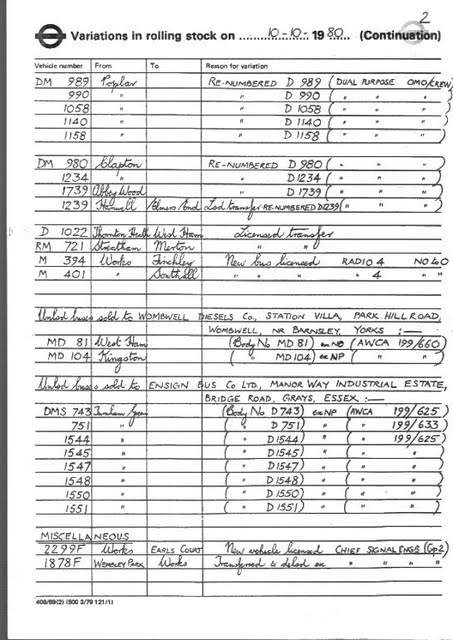 2
Variations in rolling stock on 10-10- 1980 (Continuation)
Vehicle number From To Reason for variation
DM 989 Poplar RE-NUMBERED D 989 (DUAL PURPOSE OMO/CREW)
990 " " D 990 ( " " " )
1058 " " D 1058 ( " " " )
1140 " " D 1140 ( " " " )
1158 " " D 1158 ( " " " )
DM 980 Clapton RE-NUMBERED D 980 ( " " " )
1234 " " D 1234 ( " " " )
1739 Abbey Wood " D 1739 ( " " " )
1239 Hanwell Elmers End Lcd transfer RE-NUMBERED D1239 ( " " )
D 1022 Thornton Heath West Ham Licensed transfer
RM 721 Streatham Merton " "
M 394 Works Finchley New bus licensed RADIO 4 NO 40
M 401 " Southall " " " " 4 " "
Unlcd buses sold to WOMBWELL DIESELS Co., STATION VILLA, PARK HILL ROAD,
WOMBWELL, NR BARNSLEY, YORKS :—
MD 81 West Ham (Body No MD 81) ex NP (AWCA 199/660)
MD 104 Kingston ( " MD 104) ex NP ( " " )
Unlcd buses sold to ENSIGN BUS Co LTD, MANOR WAY INDUSTRIAL ESTATE,
BRIDGE ROAD, GRAYS, ESSEX :—
DMS 743 Turnham Green (Body No D 743) ex NP (AWCA 199/625)
751 " ( " D 751) " ( " 199/633)
1544 " ( " D 1544) " ( " 199/625)
1545 " ( " D 1545) " ( " " )
1547 " ( " D 1547) " ( " " )
1548 " ( " D 1548) " ( " " )
1550 " ( " D 1550) " ( " " )
1551 " ( " D 1551) " ( " " )
MISCELLANEOUS
2299F Works EARLS COURT New vehicle licensed CHIEF SIGNAL ENGS (Gp2)
1878F WEMBLEY PARK Works Transferred & delcd ex " " "
408/89(2) (500 3/79 121/1)